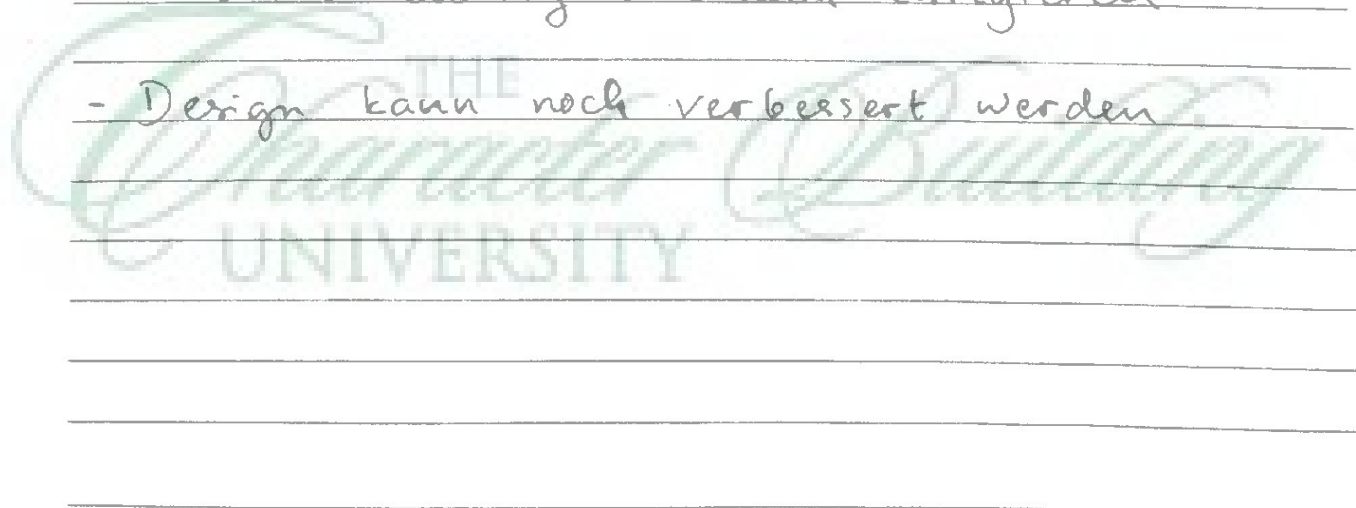 - Design kann noch verbessert werden
THE
Character Building
UNIVERSITY